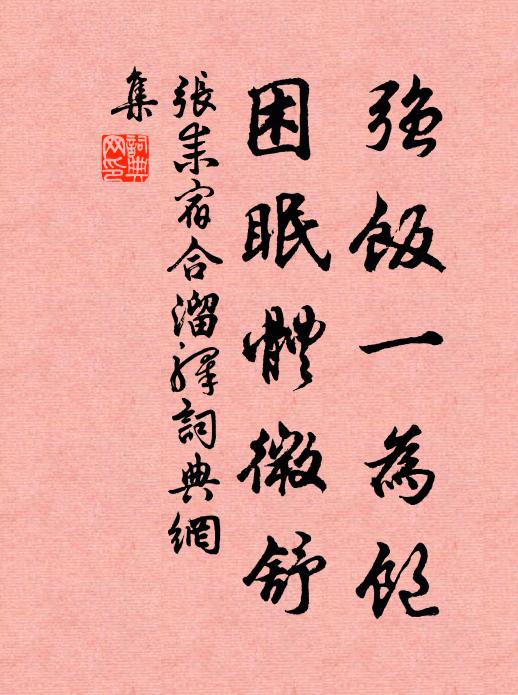 強飯一為飽
困眠體微舒
張耒宿合溜驛詞典網
集
詞典
网印